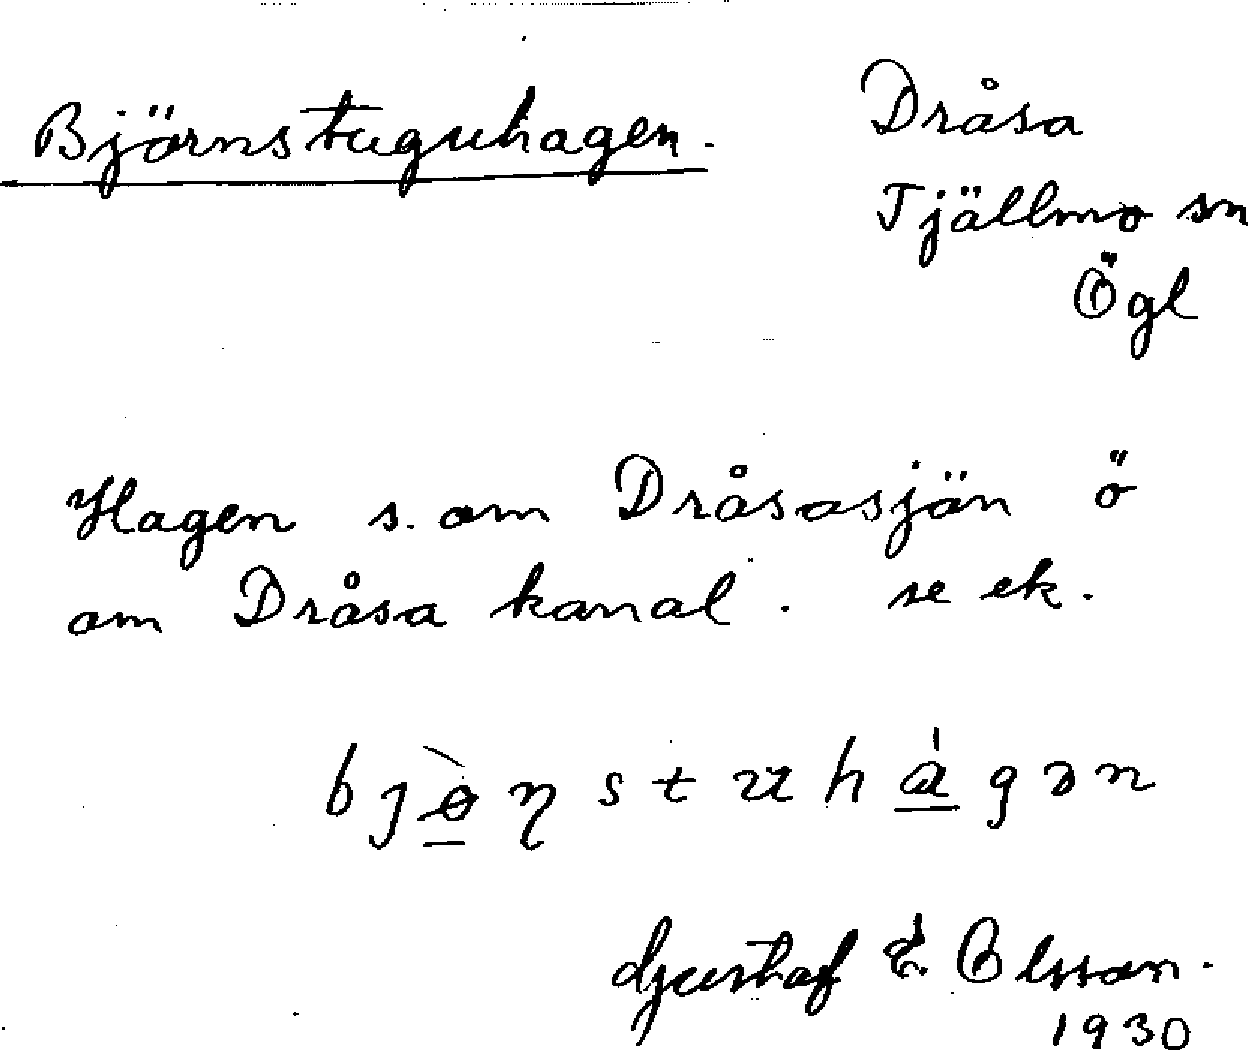 Björnstuguhagen.
Dråsa
Tjällmo sn
Ögl
Hagen s. om Dråsasjön ö
om Dråsa kanal. se ek.
bjø̀ŋstuhágən
Gustaf E. Olsson.
1930